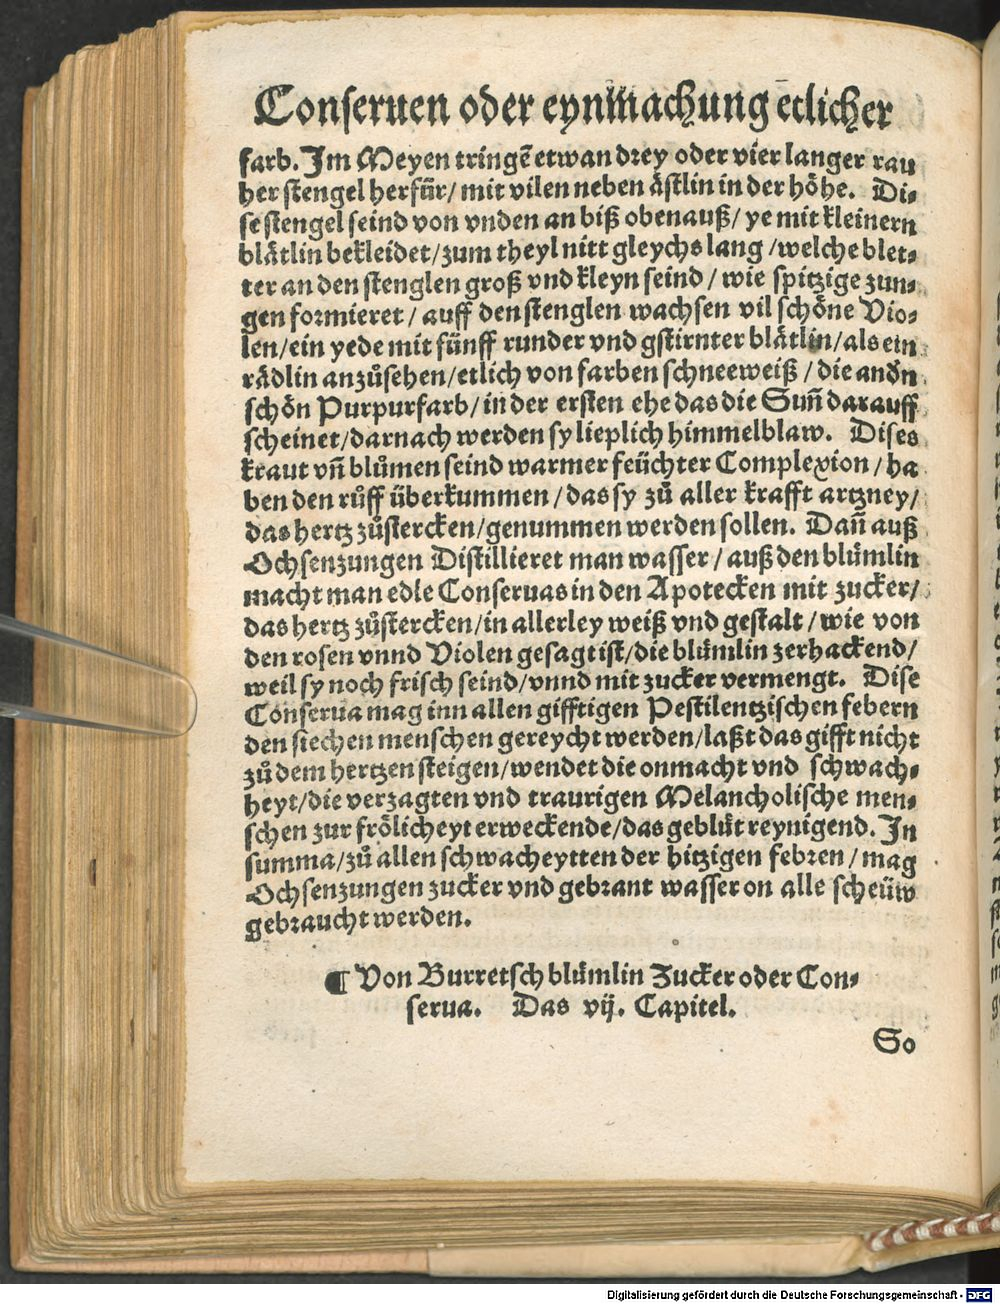 Conseruen oder eynmachung etlicher
farb. Im Meyen tringẽ etwan drey oder vier langer rau
her stengel herfür/ mit vilen neben åstlin in der höhe. Di⸗
se stengel seind von vnden an biß obenauß/ ye mit kleinern
blåtlin bekleidet/ zum theyl nitt gleychs lang /welche blet⸗
ter an den stenglen groß vnd kleyn seind / wie spitzige zun⸗
gen formieret / auff den stenglen wachsen vil schöne Vio⸗
len/ein yede mit fünff runder vnd gstirnter blåtlin/als ein
rådlin anzůsehen/etlich von farben schneeweiß / die andn
schön Purpurfarb/ in der ersten ehe das die Suñ darauff
scheinet/darnach werden sy lieplich himmelblaw. Dises
kraut vñ blůmen seind warmer feüchter Complexion / ha
ben den růff überkummen / das sy zů aller krafft artzney/
das hertz zůstercken/genummen werden sollen. Dañ auß
Ochsenzungen Distillieret man wasser / auß den blümlin
macht man edle Conseruas in den Apotecken mit zucker/
das hertz zůstercken/in allerley weiß vnd gestalt / wie von
den rosen vnnd Violen gesagt ist/die blümlin zerhackend/
weil sy noch frisch seind/vnnd mit zucker vermengt. Dise
Conserua mag inn allen gifftigen Pestilentzischen febern
den siechen menschen gereycht werden/laßt das gifft nicht
zů dem hertzen steigen/wendet die onmacht vnd schwach⸗
heyt/die verzagten vnd traurigen Melancholische men⸗
schen zur frölicheyt erweckende/das geblüt reynigend. In
summa/zů allen schwacheytten der hitzigen febren / mag
Ochsenzungen zucker vnd gebrant wasser on alle scheüw
gebraucht werden.
¶ Von Burretsch blümlin Zucker oder Con⸗
serua. Das vij. Capitel.
So
Digitalisierung gefördert durch die Deutsche Forschungsgemeinschaft - DFG